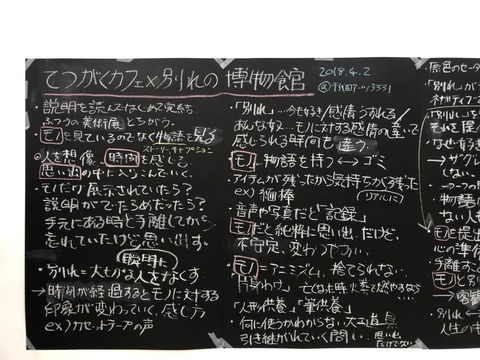 てつがくカフェ×別れの博物館
2018.4.2
@千代田アーツ3331
・説明を読んではじめて完結
ふつうの美術展とちがう。
モノを見ているのでなく物語を見る
ストーリーキャプション
◎人を想像、時間を感じる
思い出の中に入りこんでいく。
・モノだけ展示されていたら?
説明がでたらめだったら?
手元にある時と手離してから
忘れていたけど思い出す。
瞬時に
・別れ=大切な人をなくす
→時間が経過するとモノに対する
印象が変わっていく、感じ方
ex)カセットテープの声
・「別れ」…今も好き/感情うすれる
あんなに好き…モノに対する感情の違いで
感じられる時間も違う。
・モノ、物語を持つ↔ゴミ
・アイテムが残ったから気持ちが残った
ex)綿棒 (リアルに)
・音声や写真だと「記録」
モノだと純粋に思い出、だけど、
不安定、変わりやすい…
・モノ=アニミズム、捨てられない…
「片身わけ」 亡くなった時火葬で燃やすなら…
「人形供養」「筆供養」
・何に使うかわからない大工道具
引き継がれていく問い… 思い出だけでない
・原色のセータ
・「別れ」が
ネガティブで
・「別れ」を
それを提
・なぜ好き
→ザグレ
物語
ない人も
・モノを提出
心の準備
手離すこ
・モノと別
・別れ↔
人生のキ